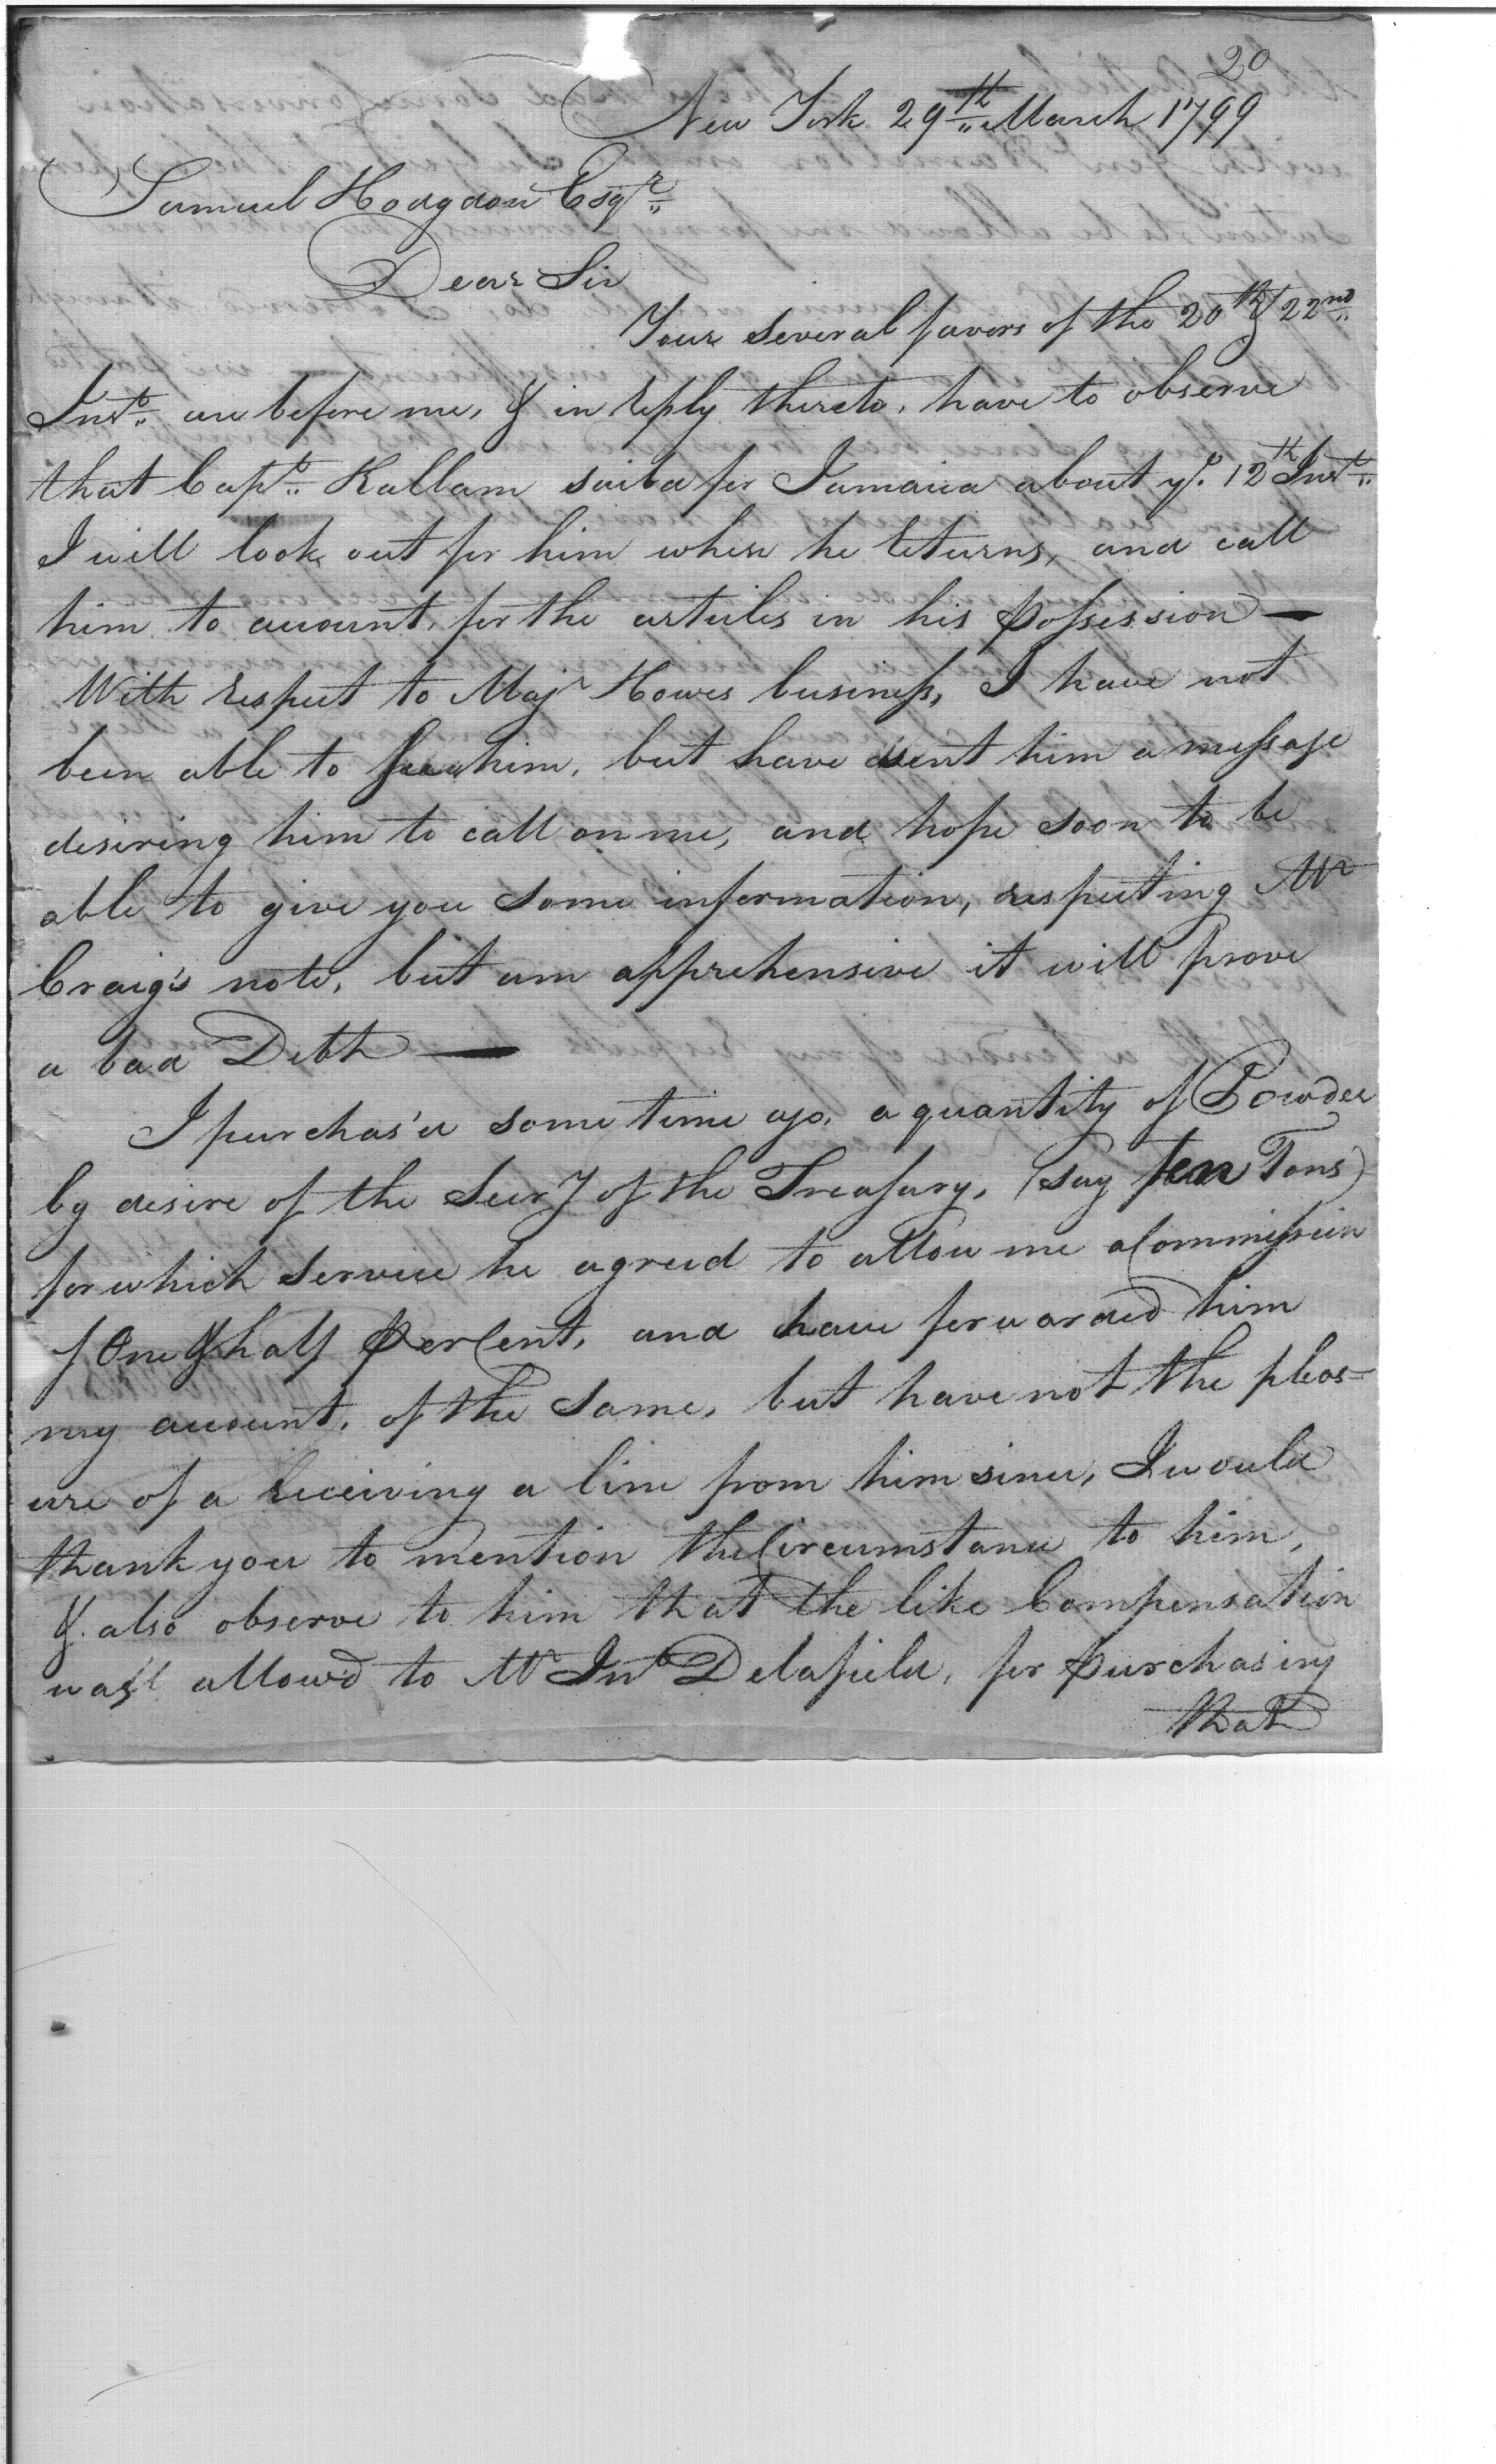 20
New York 29th March 1799
Samuel Hodgdon Esqr
Dear Sir
Your several favors of the 20th & 22nd
Inst. are before me, & in reply thereto, have to observe
that Capt. Kallam saild for Jamaica about ye. 12th Inst.
I will look out for him when he returns, and call
him to account, for the articles in his possession —
With respect to Majr Howes business, I have not
been able to see him, but have sent him a message
desiring him to call on me, and hope soon to be
able to give you some information, respecting Mr
Craig's note, but am apprehensive it will prove
a bad Debt —
I purchas'd some time ago, a quantity of Powder
by desire of the Secry of the Treasury, (say ten Tons)
for which service he agreed to allow me a Commission
of One & half per Cent, and have forwarded him
my account, of the same, but have not the pleas=
ure of a receiving a line from him since, I would
thank you to mention the Circumstance to him,
& also observe to him that the like Compensation
was allow'd to Mr Jno Delafield, for purchasing
that